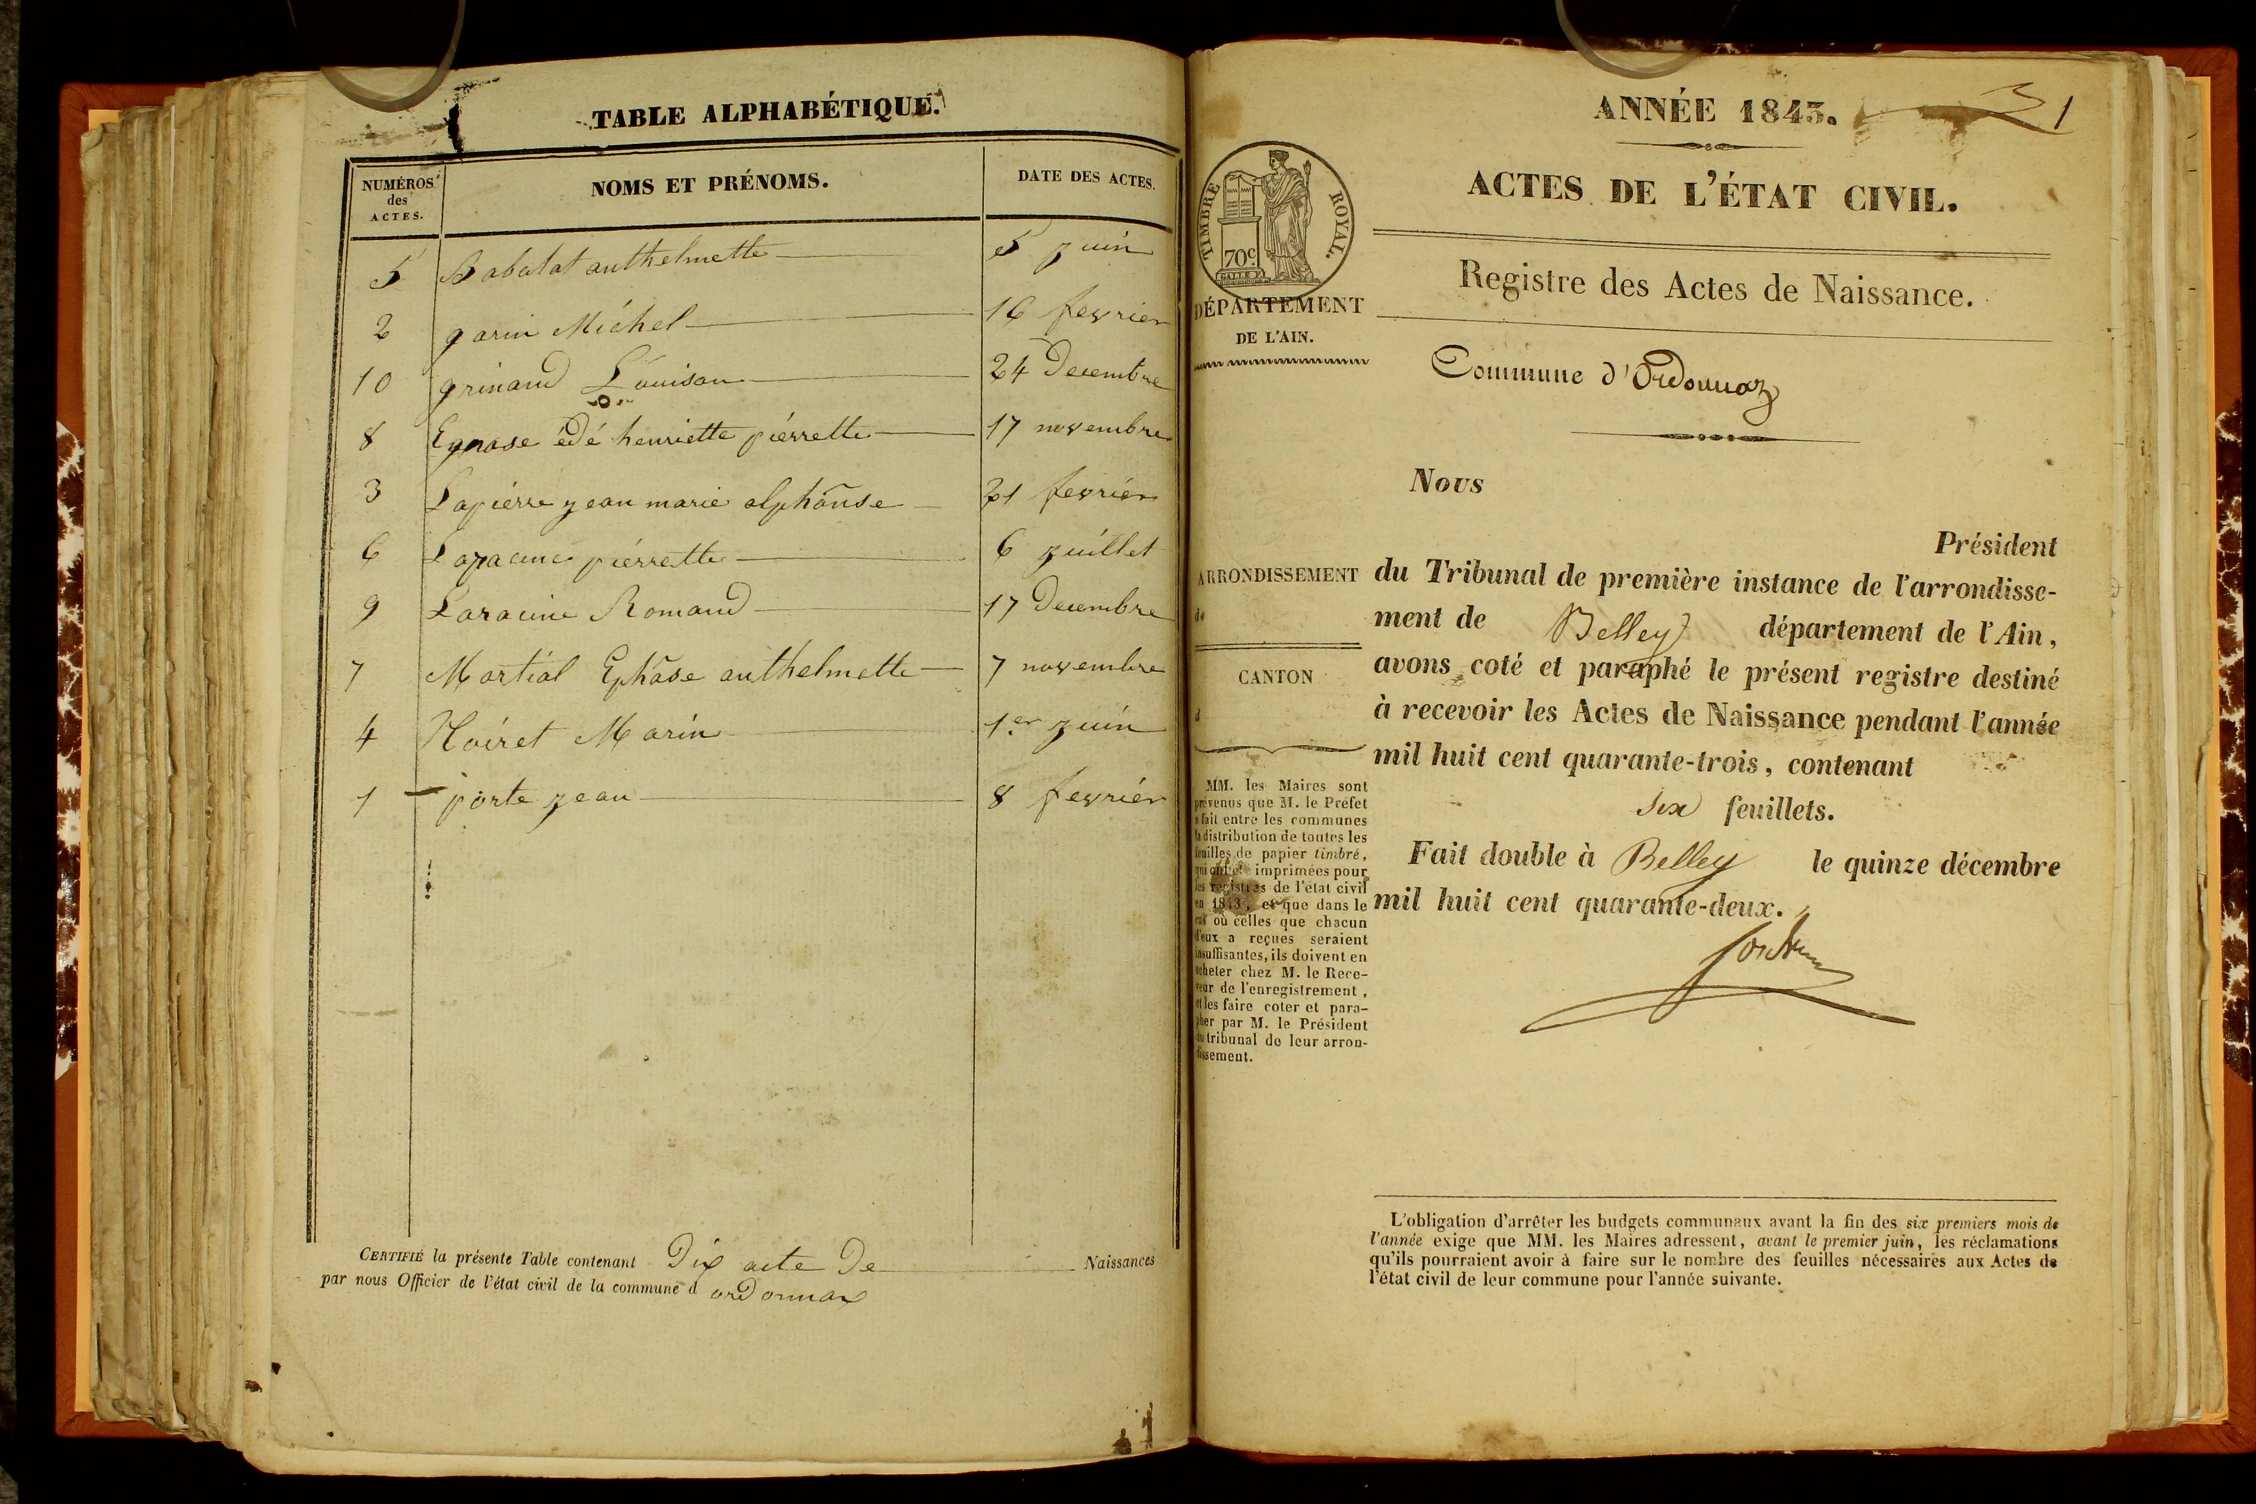 TABLE ALPHABÉTIQUE.
NUMÉROS des ACTES. NOMS ET PRÉNOMS. DATE DES ACTES.
5 Babolat anthelmette 5 juin
2 garin Michel 16 fevrier
10 grinand Louison 24 Decembre
8 henriette pierrette 17 novembre
3 Lapierre jean marie alphonse 21 fevrier
6 Laracine pierrette 6 juillet
9 Laracine Romand 17 Decembre
7 Martial Ephase anthelmette 7 novembre
4 Noiret Marin 1er juin
1 porte jean 8 fevrier
CERTIFIÉ la présente Table contenant Dix acte De Naissances
par nous Officier de l'état civil de la commune d ordonnax
ANNÉE 1843. 1
ACTES DE L'ÉTAT CIVIL.
TIMBRE ROYAL.
70c.
Registre des Actes de Naissance.
DÉPARTEMENT
DE L'AIN.
Commune d'Ordonnaz
Nous
Président
ARRONDISSEMENT
de
CANTON
d
du Tribunal de première instance de l'arrondisse-
ment de Belley département de l'Ain,
avons coté et paraphé le présent registre destiné
à recevoir les Actes de Naissance pendant l'année
mil huit cent quarante-trois, contenant
six feuillets.
Fait double à Belley le quinze décembre
mil huit cent quarante-deux.
MM. les Maires sont
prévenus que M. le Préfet
a fait entre les communes
la distribution de toutes les
feuilles de papier timbré,
qui ont été imprimées pour
les registres de l'état civil
en 1843, et que dans le
cas où celles que chacun
d'eux a reçues seraient
insuffisantes, ils doivent en
acheter chez M. le Rece-
veur de l'enregistrement,
et les faire coter et para-
pher par M. le Président
du tribunal de leur arron-
dissement.
L'obligation d'arrêter les budgets communaux avant la fin des six premiers mois de
l'année exige que MM. les Maires adressent, avant le premier juin, les réclamations
qu'ils pourraient avoir à faire sur le nombre des feuilles nécessaires aux Actes de
l'état civil de leur commune pour l'année suivante.